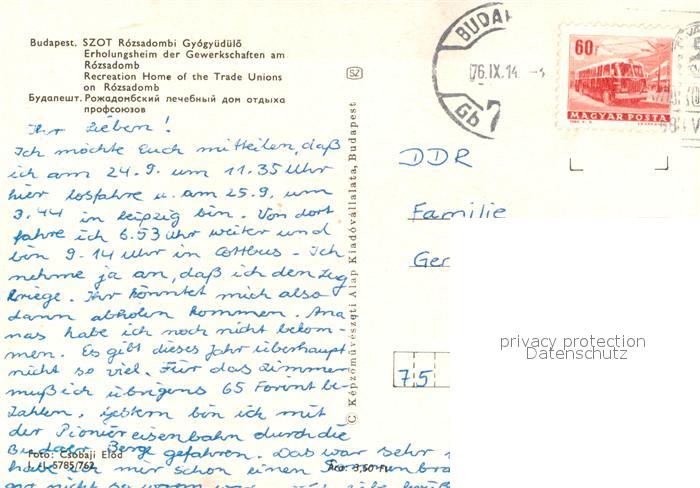 Budapest. SZOT Rózsadombi Gyógyüdülő
Erholungsheim der Gewerkschaften am
Rózsadomb
Recreation Home of the Trade Unions
on Rózsadomb
Будапешт. Рожадомбский лечебный дом отдыха
профсоюзов
Ihr Lieben!
Ich möchte Euch mitteilen, daß
ich am 24.9. um 11.35 Uhr
hier losfahre u. am 25.9. um
3.44 in Leipzig bin. Von dort
fahre ich 6.53 Uhr weiter und
bin 9.14 Uhr in Cottbus. Ich
nehme ja an, daß ich den Zug
kriege. Ihr könntet mich also
dann abholen kommen. Ana
nas habe ich noch nicht bekom-
men. Es gibt dieses Jahr überhaupt
nicht so viel. Für das Zimmer
muß ich übrigens 65 Forint be-
zahlen. Gestern bin ich mit
der Pioniereisenbahn durch die
Budaer Berge gefahren. Das war sehr
habe ich mir schon einen
gar nicht so warm war
Foto: Csobaji Előd
I. H. 5785/762
Ára: 3,50 Ft
SZ
© Képzőművészeti Alap Kiadóvállalata, Budapest
BUDAP
76.IX.14.
Gb 7
60f
MAGYAR POSTA
DDR
Familie
Ger
75
privacy protection
Datenschutz